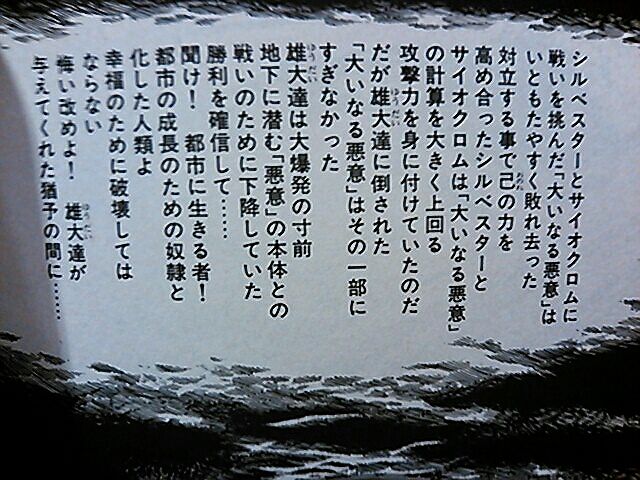 シルベスターとサイオクロムに
戦いを挑んだ「大いなる悪意」は
いともたやすく敗れ去った
対立する事で己の力を
高め合ったシルベスターと
サイオクロムは「大いなる悪意」
の計算を大きく上回る
攻撃力を身に付けていたのだ
だが雄大達に倒された
「大いなる悪意」はその一部に
すぎなかった
雄大達は大爆発の寸前
地下に潜む「悪意」の本体との
戦いのために下降していた
勝利を確信して……
聞け！　都市に生きる者！
都市の成長のための奴隷と
化した人類よ
幸福のために破壊しては
ならない
悔い改めよ！　雄大達が
与えてくれた猶予の間に……